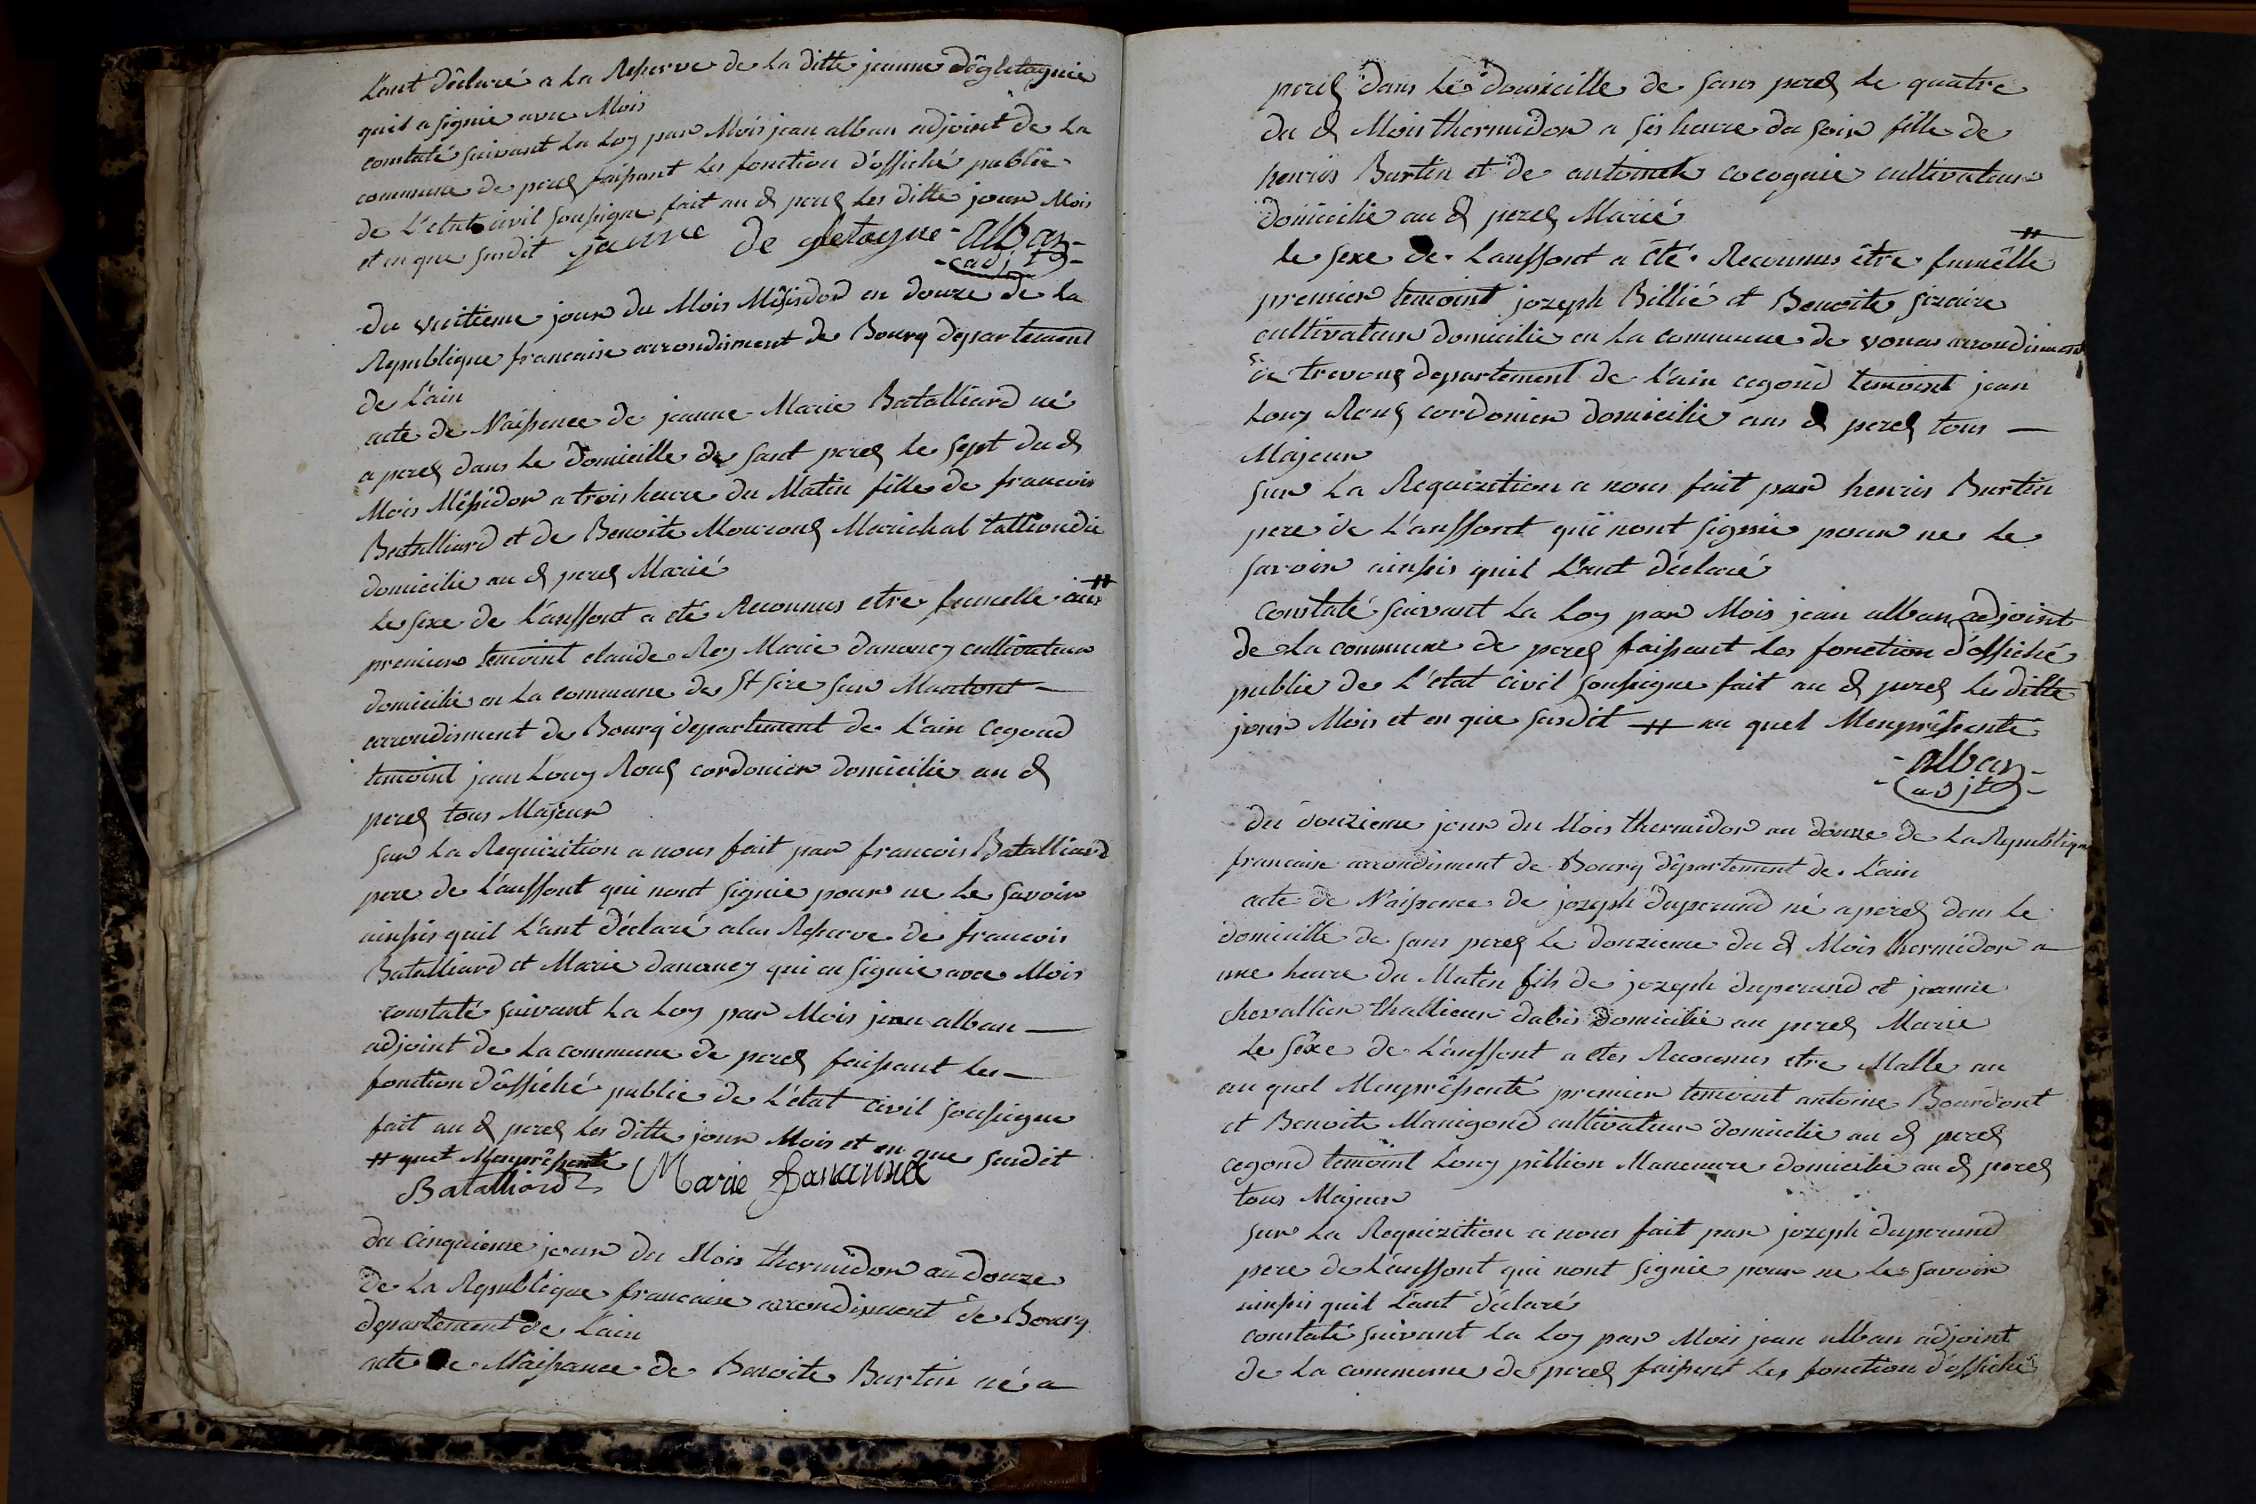 L'ant déclaré a La Reserve de La ditte jeanne dêgletagnie
quil a signie avec Mois
constaté suivant La Loy par Mois jean alban adjoint de La
commune de perex faisant Les fonction d'offiché public
de L'etat civil sousigne fait au d perex Les ditte jour Mois
et en que susdit jeanne de gletagne - alban -
- adjt -
du vuitieme jour du Mois Mésidor en douze de la
Republique francaise arrondisment de Bourg departement
de L'ain
acte de Naissence de jeanne Marie Batalliard né
a perex dans Le domicille de sant perex Le sept du d
Mois Mésidor a trois heure du Matin fille de francois
Batalliard et de Benoite Mouroux Marichal talliondié
domicilié au d perex Marié
Le sexe de L'anffont a eté Reconnus etre fumelle #
premier temoint claude Rey Marie dananey cultivateur
domicilie en La commune de St sire sur Mantont -
arrondisment de Bourg departement de L'ain cegond
temoint jean Louy Roux cordonier domicilie au d
perex tous Majeur
sur La Requizition a nous fait par francois Batalliard
pere de L'anffont qui nont signie pour ne Le savoir
ainsis quil L'ant déclaré a La Reserve de francois
Batalliard et Marie dananey qui on signie avec Mois
constaté suivant La Loy par Mois jean alban -
adjoint de La commune de perex faisant Les -
fonction d'offiché public de L'état civil sousigne
fait au d perex Les ditte jour Mois et en que susdit
# quel Menprésenté
Batalliard Marie
du cinquieme jour du Mois thermidor an douze
de La Republique francaise arrondisment de Bourg
departement de L'ain
acte de Naissance de Benoite Burtin né a
perex dans Le domicille de sans perex Le quatre
du d Mois thermidor a sis heure du soir fille de
henris Burtin et de antoinete cocognie cultivateur
domicilie au d perex Marié
#
le sexe de L'anffont a été Reconnus être fumelle
premier temoint jozeph Billié et Benoite sizaire
cultivateur domicilie en La commune de vonas arrondisment
de trevoux departement de L'ain cegond temoint jean
Louy Roux cordonier domicilie au d perex tous -
Majeur
sur La Requizition a nous fait pard henris Burtin
pere de L'anffont qui nont signie pour ne Le
savoir ainsis quil L'ant déclaré
constaté suivant La Loy par Mois jean alban adjoint
de La commune de perex faisant Les fonction d'offiché
public de L'état civil sousigne fait au d perex Les ditte
jour Mois et en que susdit # au quel Menprésenté
- alban -
- adjt -
du douzieme jour du Mois thermidor an douze de La Republique
francaise arrondisment de Bourg département de L'ain
acte de Naissence de jozeph duperand né a perex dans Le
domicille de sans perex Le douzieme du d Mois thermidor a
une heure du Matin fils de jozeph duperand et jeanne
chevallier thallieur dabis domicilie au perex Marie
Le sêxe de L'anffont a etes Reconnus etre Malle au
au quel Menprésenté premier temoint antoine Bourdont
et Benoite Manigond cultivateur domicilie au d perex
cegond temoint Louy pillion Maneuvre domicilie au d perex
tous Majeur
sur La Requizition a nous fait par jozeph duperand
pere de L'anffont qui nont signie pour ne Le savoir
ainsis quil L'ant déclaré
constaté suivant La Loy par Mois jean alban adjoint
de La commune de perex faisant Les fonction d'offiché